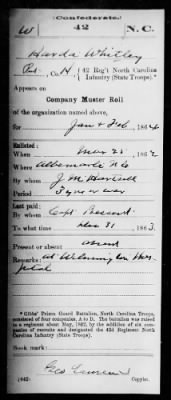 (Confederate.)
W 42 N. C.
Harda Whitley
Pvt, Co. H, 42 Reg't North Carolina
Infantry (State Troops).*
Appears on
Company Muster Roll
of the organization named above,
for Jan & Feb, 1864.
Enlisted:
When Mar 25, 1862
Where Albemarle N C
By whom J M Hartsell
Period 3 yrs or war
Last paid:
By whom Capt
To what time Dec 31, 1863.
Present or absent absent
Remarks: at Wilmington Hos-
pital
* Gibbs' Prison Guard Battalion, North Carolina Troops,
consisted of four companies, A to D. The battalion was raised
to a regiment about May, 1862, by the addition of six com-
panies of recruits and designated the 42d Regiment North
Carolina Infantry (State Troops).
Book mark:
Geo
(642) Copyist.